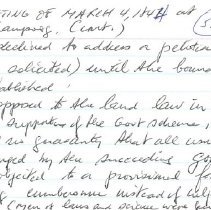 TING OF MARCH 4, 1844 at
(cont.)
declined to address a petition
solicited) until the boun
ablished!
opposed to the land law in
support of the Govt scheme,
no guaranty that all
ged by the succeeding Go
objected to a provisional
cumbersome instead of help
(men of laws and science were